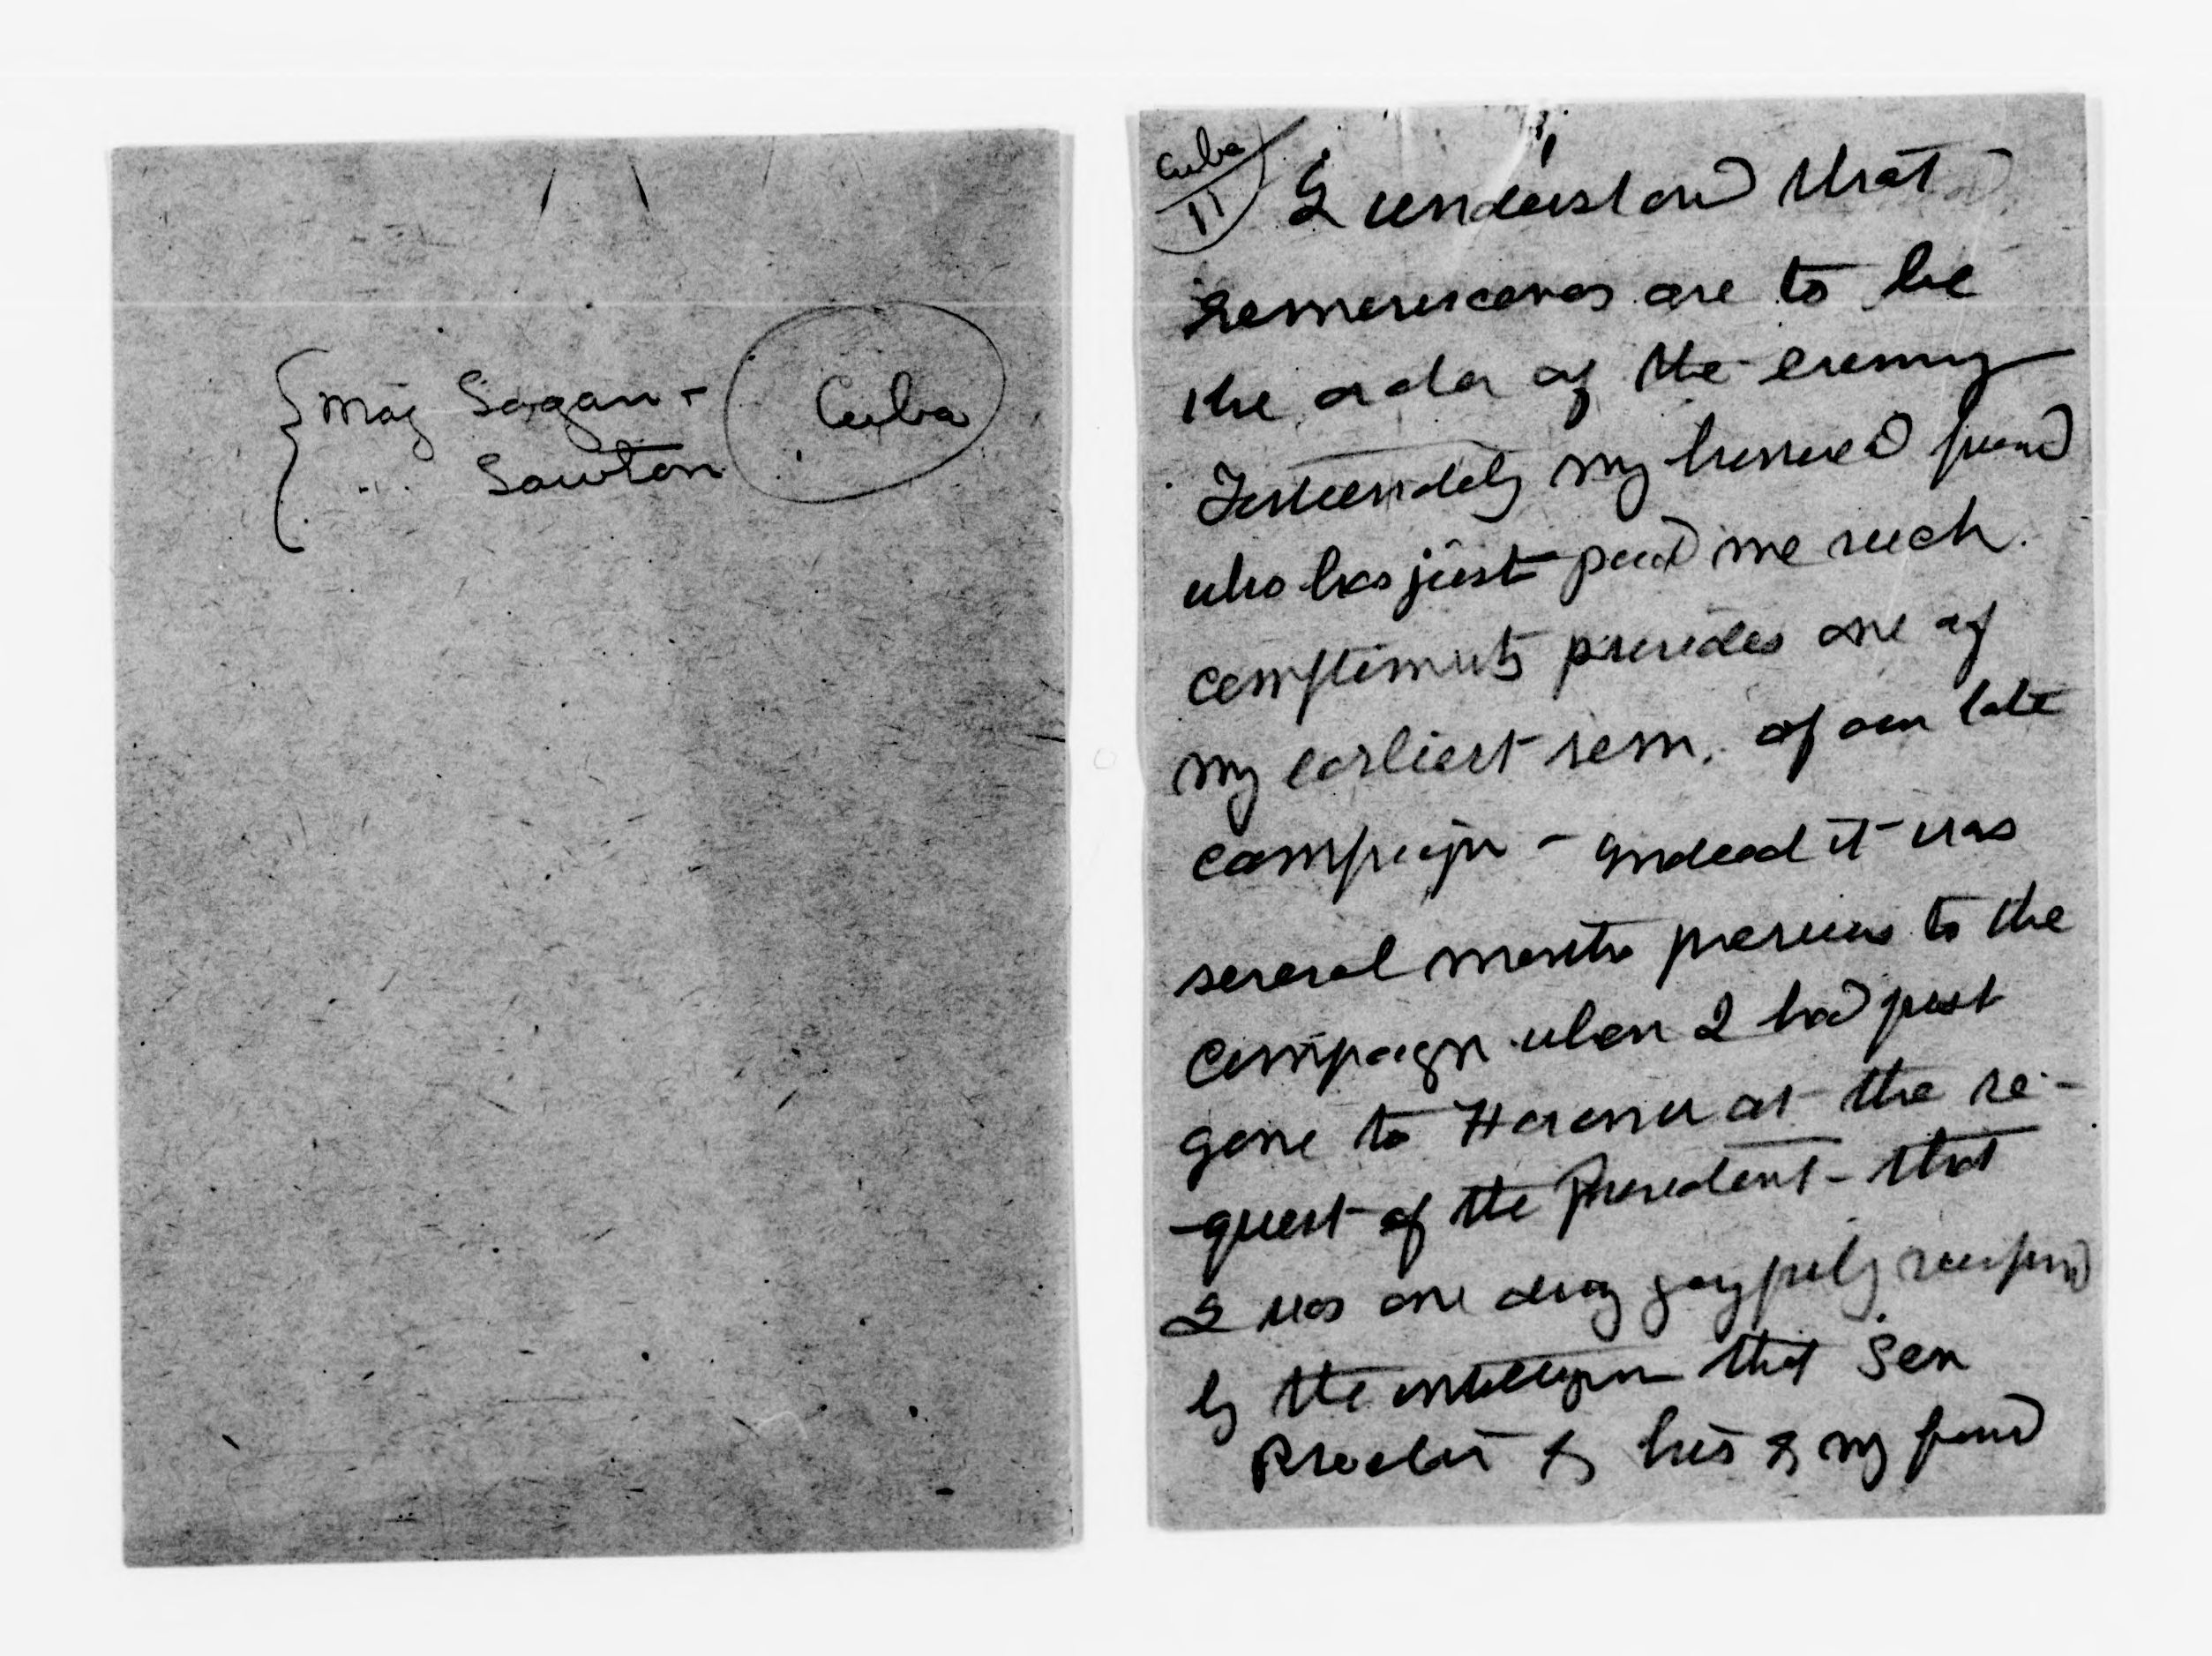 Maj Sagan -
" Lawton
Cuba
Cuba
11
I understand that
are to be
the order of the evening
my honored friend
who has just paid me such
compliments provides one of
my earliest rem. of our late
campaign - Indeed it was
several months previous to the
campaign when I had just
gone to Havana at the re-
-quest of the President - that
I was one day joyfully surprised
by the intelligence that Sen
Proctor & his & my friend